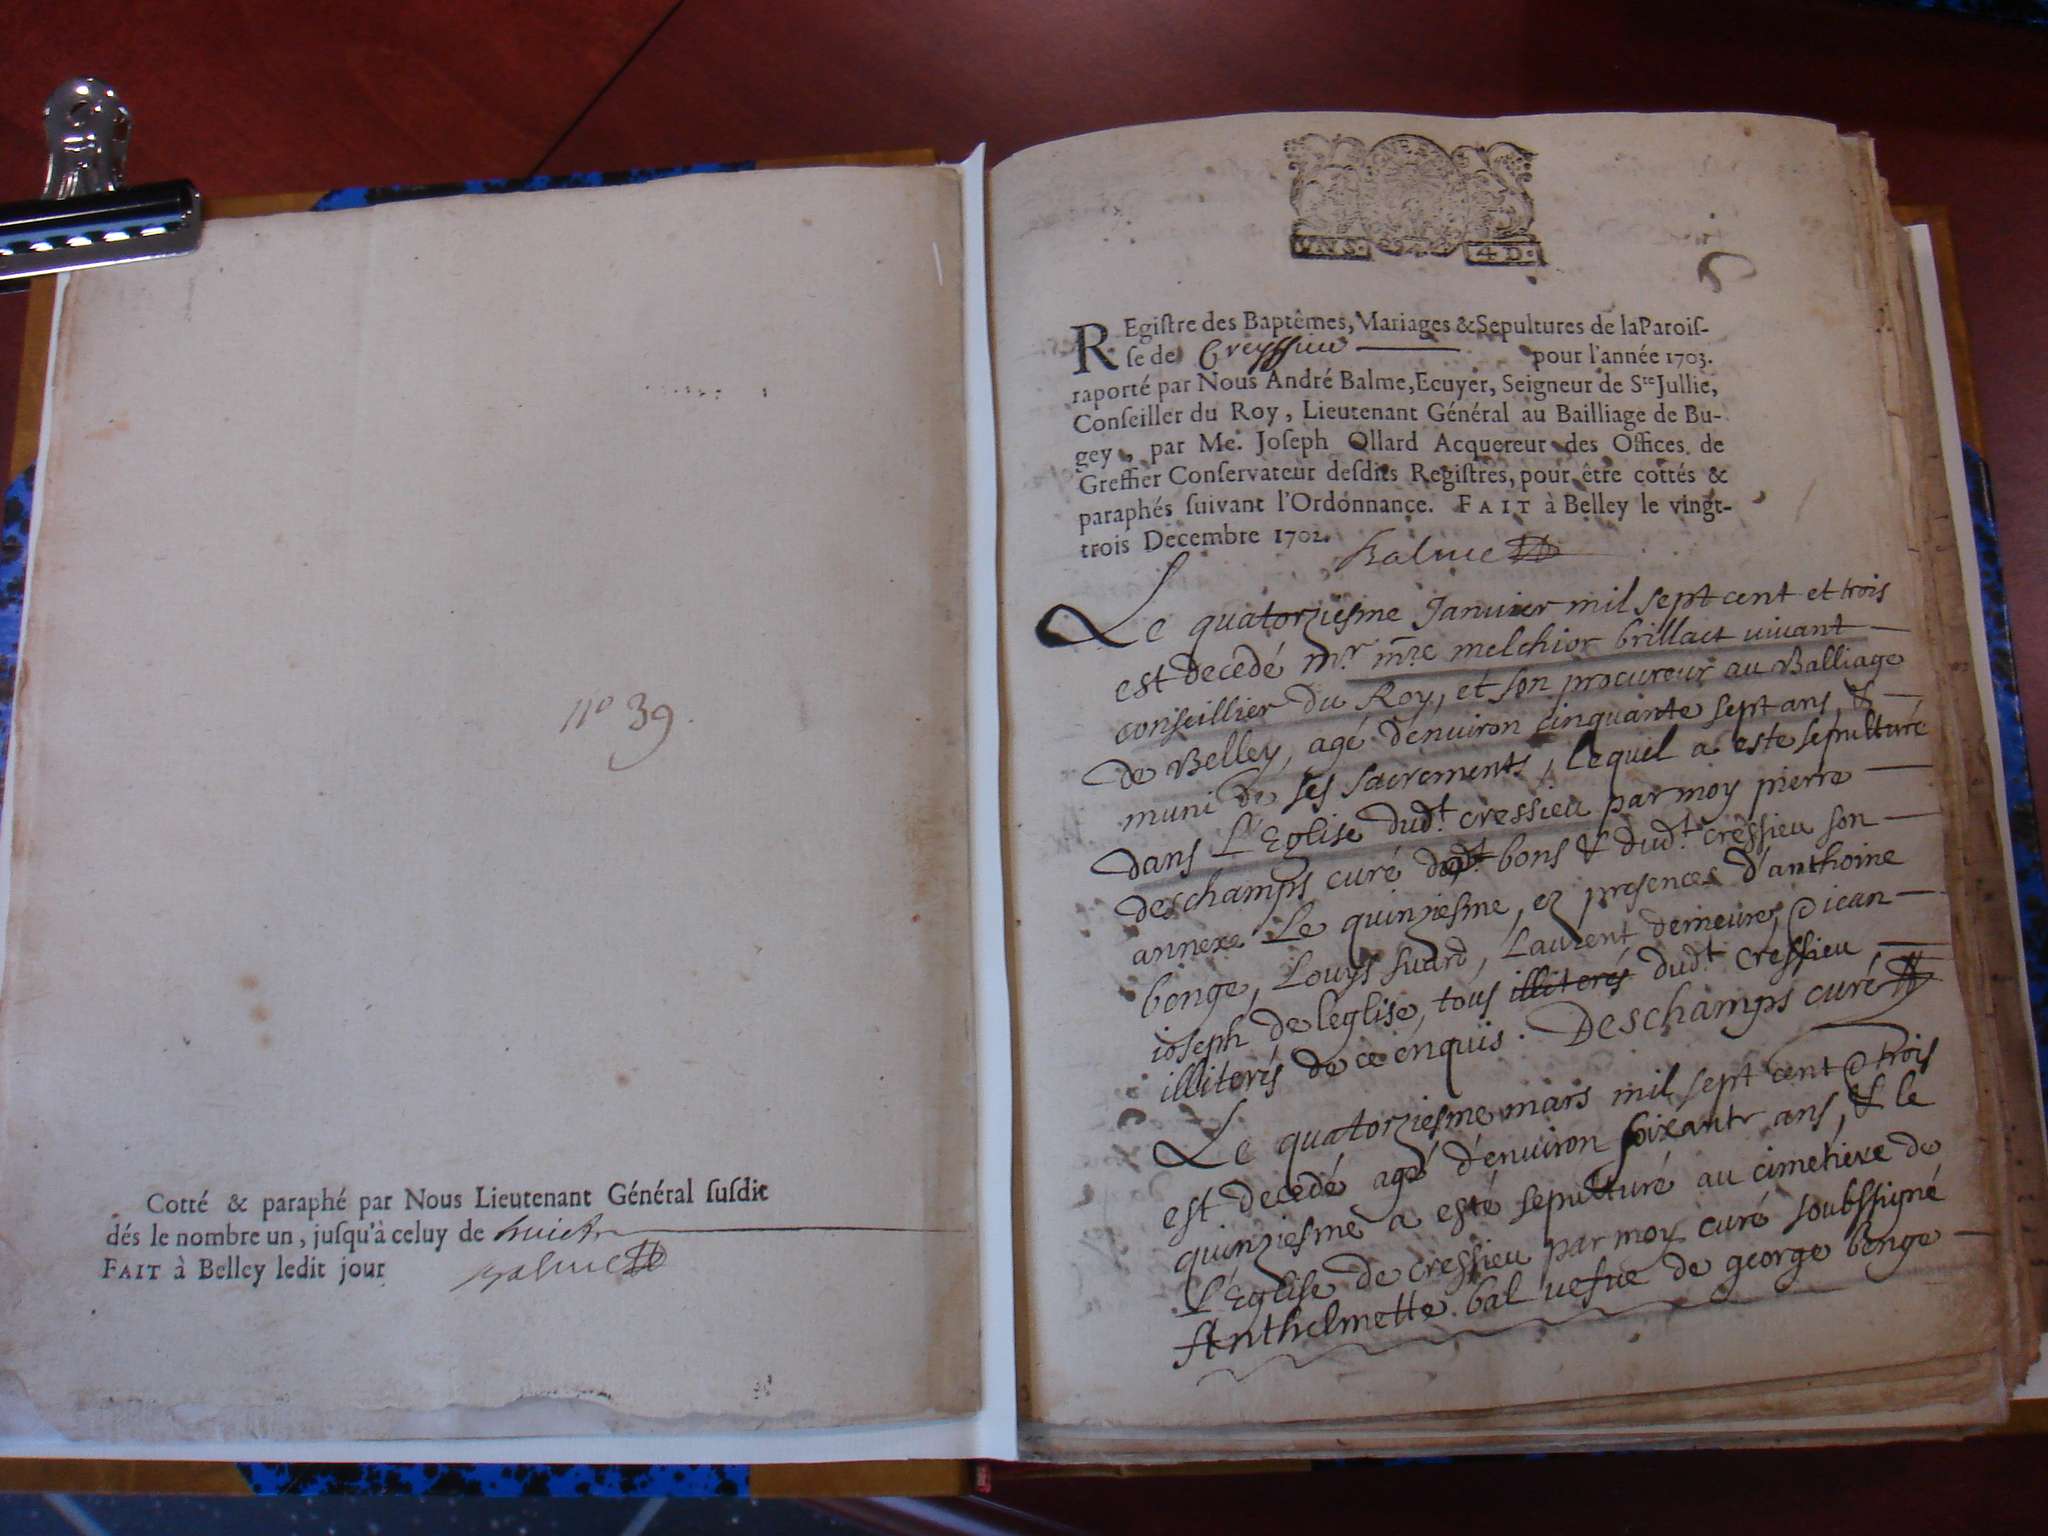 nº 39.
Cotté & paraphé par Nous Lieutenant Général susdit
dés le nombre un, jusqu'à celuy de huict
FAIT à Belley ledit jour Balme
4.D.
REgistre des Baptêmes, Mariages & Sepultures de la Parois-
se de Creyssieu pour l'année 1703.
raporté par Nous André Balme, Ecuyer, Seigneur de Ste Jullie,
Conseiller du Roy, Lieutenant Général au Bailliage de Bu-
gey, par Me. Joseph Ollard Acquereur des Offices de
Greffier Conservateur desdits Registres, pour être cottés &
paraphés suivant l'Ordonnance. FAIT à Belley le vingt-
trois Decembre 1702. Balme
Le quatorziesme Januier mil sept cent et trois
est decedé mr mre melchior brillact viuant
conseillier du Roy, et son procureur au Balliage
de Belley, agé d'enuiron cinquante sept ans, &
muni de ses sacrements, lequel a este sepulturé
dans L'Eglise dudt. cressieu par moy pierre
deschamps curé bons & dudt. cressieu son
annexe Le quinziesme, ez presences d'anthoine
benge, Louys suard, Laurent demeure, & iean
ioseph de leglise, tous illiterés dudt. cressieu,
illiterés de ce enquis. Deschamps curé
Le quatorziesme mars mil sept cent & trois
est decedé agé d'enuiron soixante ans, & le
quinziesme a esté sepulturé au cimetiere de
L'Eglise de cressieu par moy curé soubssigné
Anthelmette bal vefue de george benge